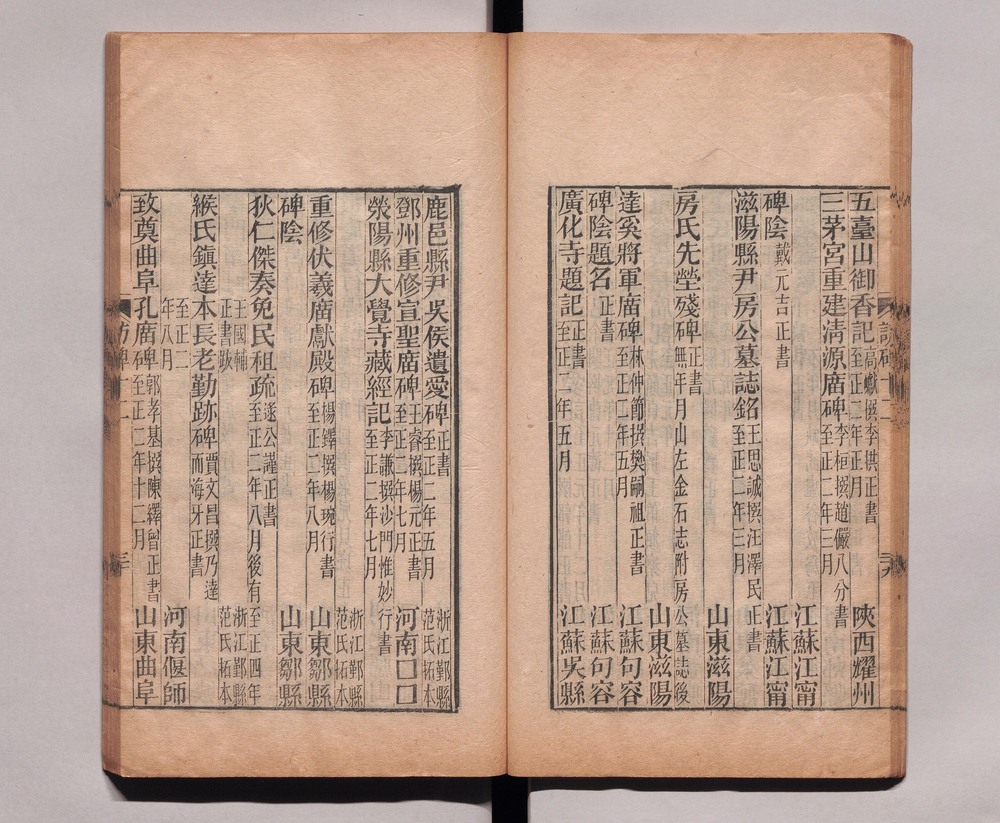 五臺山御香記 高巘撰李㮤正書 至正二年正月 陝西耀州
三茅宮重建清源廟碑 李桓撰趙儼八分書 至正二年三月 江蘇江甯
碑陰 戴元吉正書 江蘇江甯
滋陽縣尹房公墓誌銘 王思誠撰汪澤民正書 至正二年三月 山東滋陽
房氏先塋殘碑 正書 無年月山左金石志附房公墓誌後 山東滋陽
達奚將軍廟碑 林仲節撰樊嗣祖正書 至正二年五月 江蘇句容
碑陰題名 正書 江蘇句容
廣化寺題記 正書 至正二年五月 江蘇吳縣
鹿邑縣尹吳侯遺愛碑 正書 至正二年五月 浙江鄞縣范氏拓本
鄧州重修宣聖廟碑 王睿撰楊元正書 至正二年七月 河南□□
滎陽縣大覺寺藏經記 李謙撰沙門惟妙行書 至正二年七月 浙江鄞縣范氏拓本
重修伏羲廟獻殿碑 楊鐸撰楊琬行書 至正二年八月 山東鄒縣
碑陰 山東鄒縣
狄仁傑奏免民租疏 遂公謹正書 至正二年八月後有至正四年王國輔正書跋 浙江鄞縣范氏拓本
緱氏鎮達本長老勤跡碑 賈文昌撰乃達而海牙正書 至正二年八月 河南偃師
致奠曲阜孔廟碑 郭孝基撰陳繹曾正書 至正二年十二月 山東曲阜